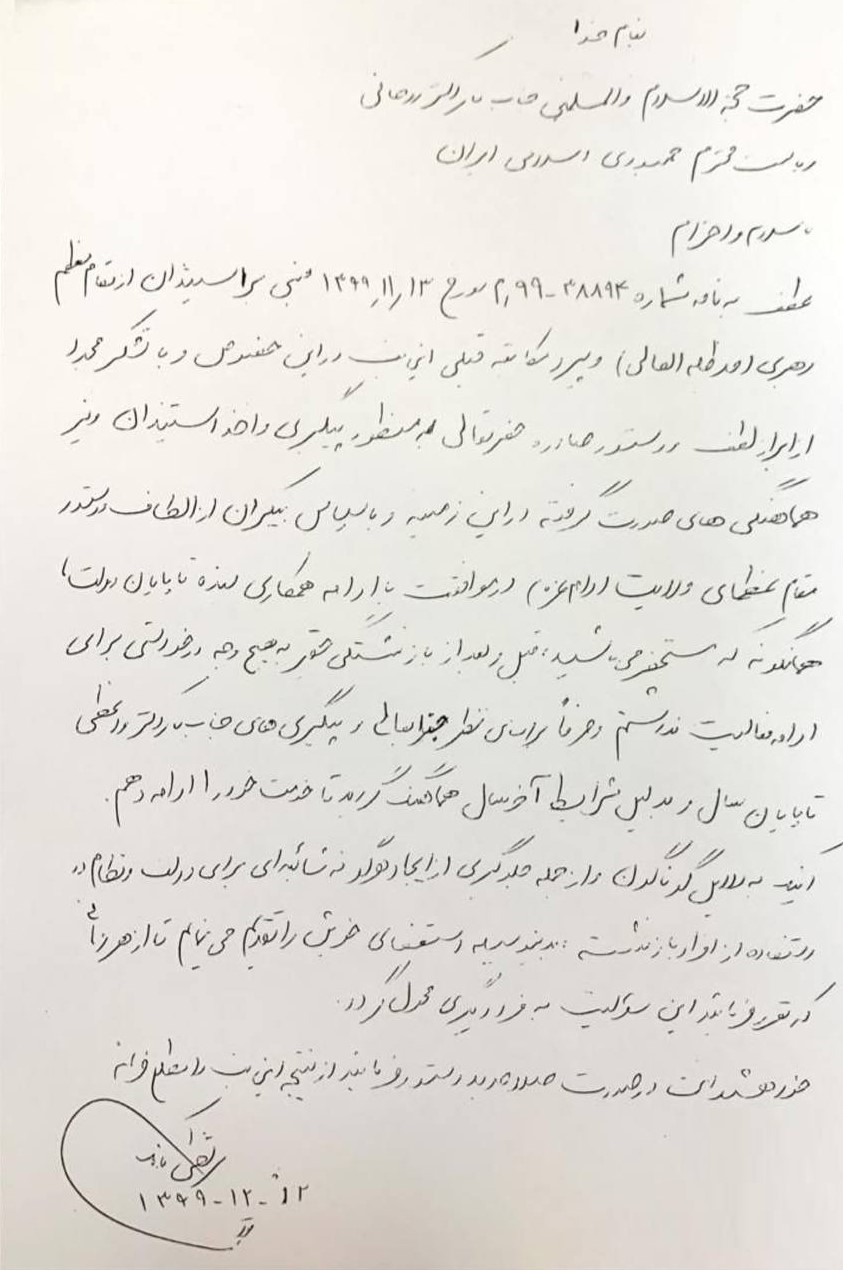 بنام خدا
حضرت حجة الاسلام والمسلمین جناب آقای دکتر روحانی
ریاست محترم جمهوری اسلامی ایران
با سلام و احترام
عطف به نامه شماره ۳۸۸۹۴-۲٫۹۹ مورخ ۱۳۹۹٫۱۱٫۱۳ مبنی بر استیذان از مقام معظم
رهبری (مد ظله العالی) و پیرو مکاتبه قبلی اینجانب در این خصوص و با تشکر مجدد
از ابراز لطف و دستور صادره حضرتعالی به منظور پیگیری و اخذ استیذان و نیز
هماهنگی های صورت گرفته در این زمینه و با سپاس بیکران از الطاف و دستور
مقام عظمای ولایت (دام عزه) در موافقت با ادامه همکاری بنده تا پایان دولت،
همانگونه که مستحضر می باشید، قبل و بعد از بازنشستگی حقیر به هیچ وجه درخواستی برای
ادامه فعالیت نداشتم و صرفاً بر اساس نظر جنابعالی و پیگیری های جناب آقای دکتر واعظی
تا پایان سال و بدلیل شرایط آخر سال هماهنگ گردید تا خدمت خود را ادامه دهم.
اینک به دلایل گوناگون و از جمله جلوگیری از ایجاد هرگونه شائبه ای برای دولت و نظام در
استفاده از افراد بازنشسته، بدینوسیله استعفای خویش را تقدیم می نمایم تا از هر زمانی
که تقریر فرمائید این مسؤلیت به فرد دیگری محول گردد.
خواهشمند است در صورت صلاحدید دستور فرمایند از نتیجه اینجانب را مطلع فرمایند
۱۳۹۹-۱۲-۱۲